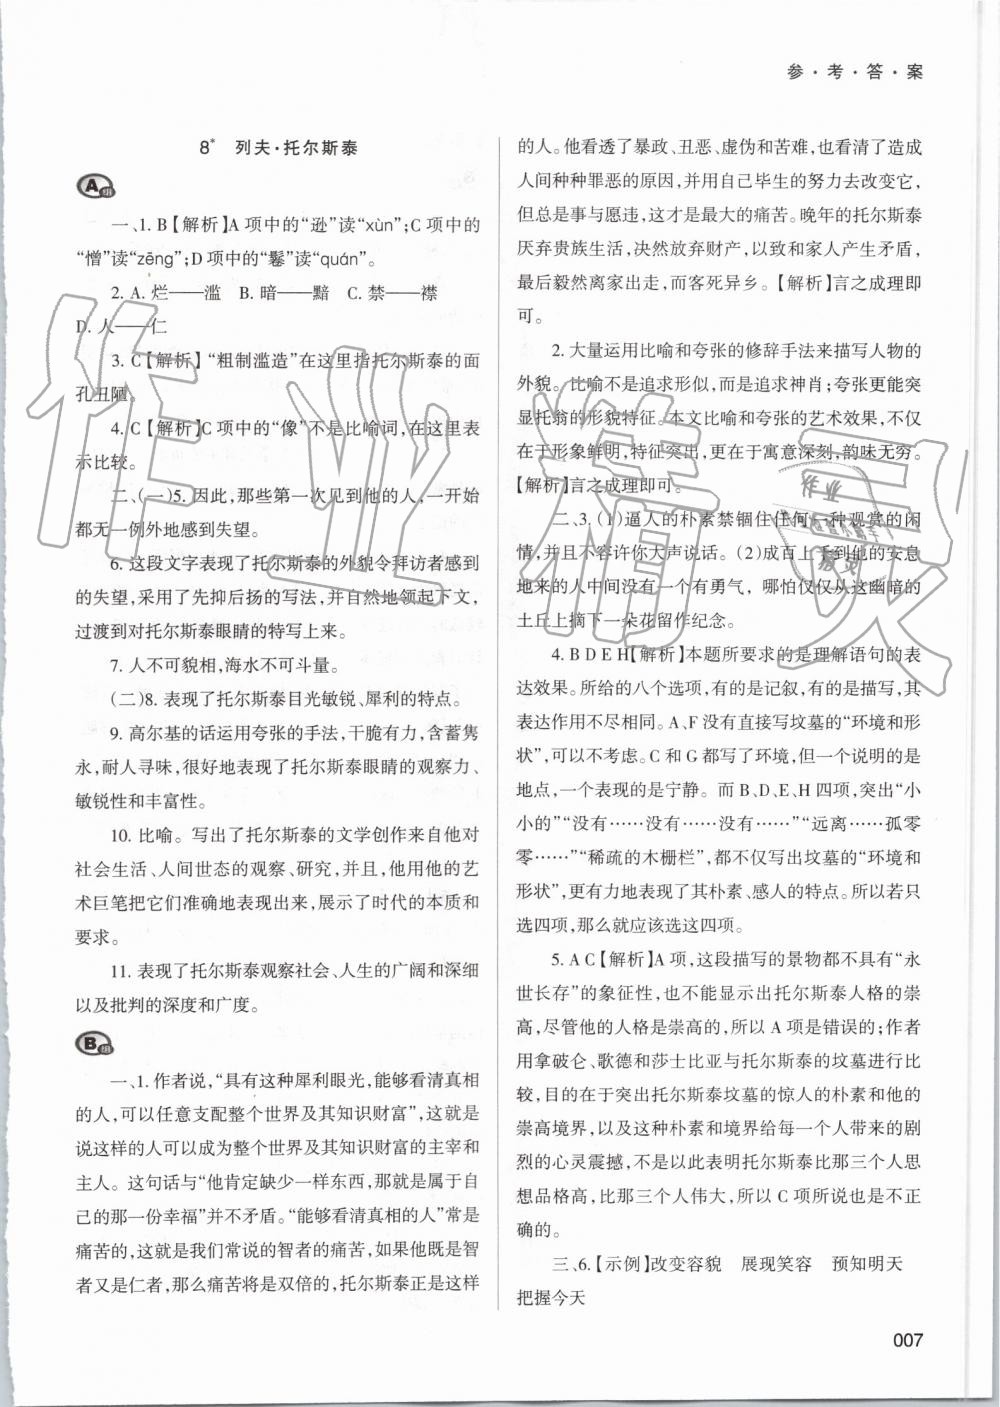 参·考·答·案
8* 列夫·托尔斯泰
A组
一、1. B【解析】A 项中的“逊”读“xùn”;C 项中的
“憎”读“zēng”;D 项中的“鬈”读“quán”。
2. A. 烂——滥 B. 暗——黯 C. 禁——襟
D. 人——仁
3. C【解析】“粗制滥造”在这里指托尔斯泰的面
孔丑陋。
4. C【解析】C 项中的“像”不是比喻词,在这里表
示比较。
二、(一)5. 因此,那些第一次见到他的人,一开始
都无一例外地感到失望。
6. 这段文字表现了托尔斯泰的外貌令拜访者感到
的失望,采用了先抑后扬的写法,并自然地领起下文,
过渡到对托尔斯泰眼睛的特写上来。
7. 人不可貌相,海水不可斗量。
(二)8. 表现了托尔斯泰目光敏锐、犀利的特点。
9. 高尔基的话运用夸张的手法,干脆有力,含蓄隽
永,耐人寻味,很好地表现了托尔斯泰眼睛的观察力、
敏锐性和丰富性。
10. 比喻。写出了托尔斯泰的文学创作来自他对
社会生活、人间世态的观察、研究,并且,他用他的艺
术巨笔把它们准确地表现出来,展示了时代的本质和
要求。
11. 表现了托尔斯泰观察社会、人生的广阔和深细
以及批判的深度和广度。
B组
一、1. 作者说,“具有这种犀利眼光,能够看清真相
的人,可以任意支配整个世界及其知识财富”,这就是
说这样的人可以成为整个世界及其知识财富的主宰和
主人。这句话与“他肯定缺少一样东西,那就是属于他
的那一份幸福”并不矛盾。“能够看清真相的人”常是
痛苦的,这就是我们常说的智者的痛苦,如果他既是智
者又是仁者,那么痛苦将是双倍的,托尔斯泰正是这样
的人。他看透了暴政、丑恶、虚伪和苦难,也看清了造成
人间种种罪恶的原因,并用自己毕生的努力去改变它,
但总是事与愿违,这才是最大的痛苦。晚年的托尔斯泰
厌弃贵族生活,决然放弃财产,以致和家人产生矛盾,
最后毅然离家出走,而客死异乡。【解析】言之成理即
可。
2. 大量运用比喻和夸张的修辞手法来描写人物的
外貌。比喻不是追求形似,而是追求神肖;夸张更能突
显托翁的形貌特征。本文比喻和夸张的艺术效果,不仅
在于形象鲜明,特征突出,更在于寓意深刻,韵味无穷。
【解析】言之成理即可。
二、3. (1)逼人的朴素禁锢住任何一种观赏的闲
情,并且不容许你大声说话。(2)成百上千到他的安息
地来的人中间没有一个有勇气，哪怕仅仅从这幽暗的
土丘上摘下一朵花留作纪念。
4. B D E H【解析】本题所要求的是理解语句的表
达效果。所给的八个选项,有的是记叙,有的是描写,其
表达作用不尽相同。A、F 没有直接写坟墓的“环境和形
状”,可以不考虑。C 和 G 都写了环境,但一个说明的是
地点,一个表现的是宁静。而 B、D、E、H 四项,突出“小
小的”“没有……没有……没有……”“远离……孤零
零……”“稀疏的木栅栏”,都不仅写出坟墓的“环境和
形状”,更有力地表现了其朴素、感人的特点。所以若只
选四项,那么就应该选这四项。
5. A C【解析】A 项,这段描写的景物都不具有“永
世长存”的象征性,也不能显示出托尔斯泰人格的崇
高,尽管他的人格是崇高的,所以 A 项是错误的;作者
用拿破仑、歌德和莎士比亚与托尔斯泰的坟墓进行比
较,目的在于突出托尔斯泰坟墓的惊人的朴素和他的
崇高境界,以及这种朴素和境界给每一个人带来的剧
烈的心灵震撼,不是以此表明托尔斯泰比那三个人思
想品格高,比那三个人伟大,所以 C 项所说也是不正
确的。
三、6.【示例】改变容貌 展现笑容 预知明天
把握今天
007
作业精灵
作业
精灵